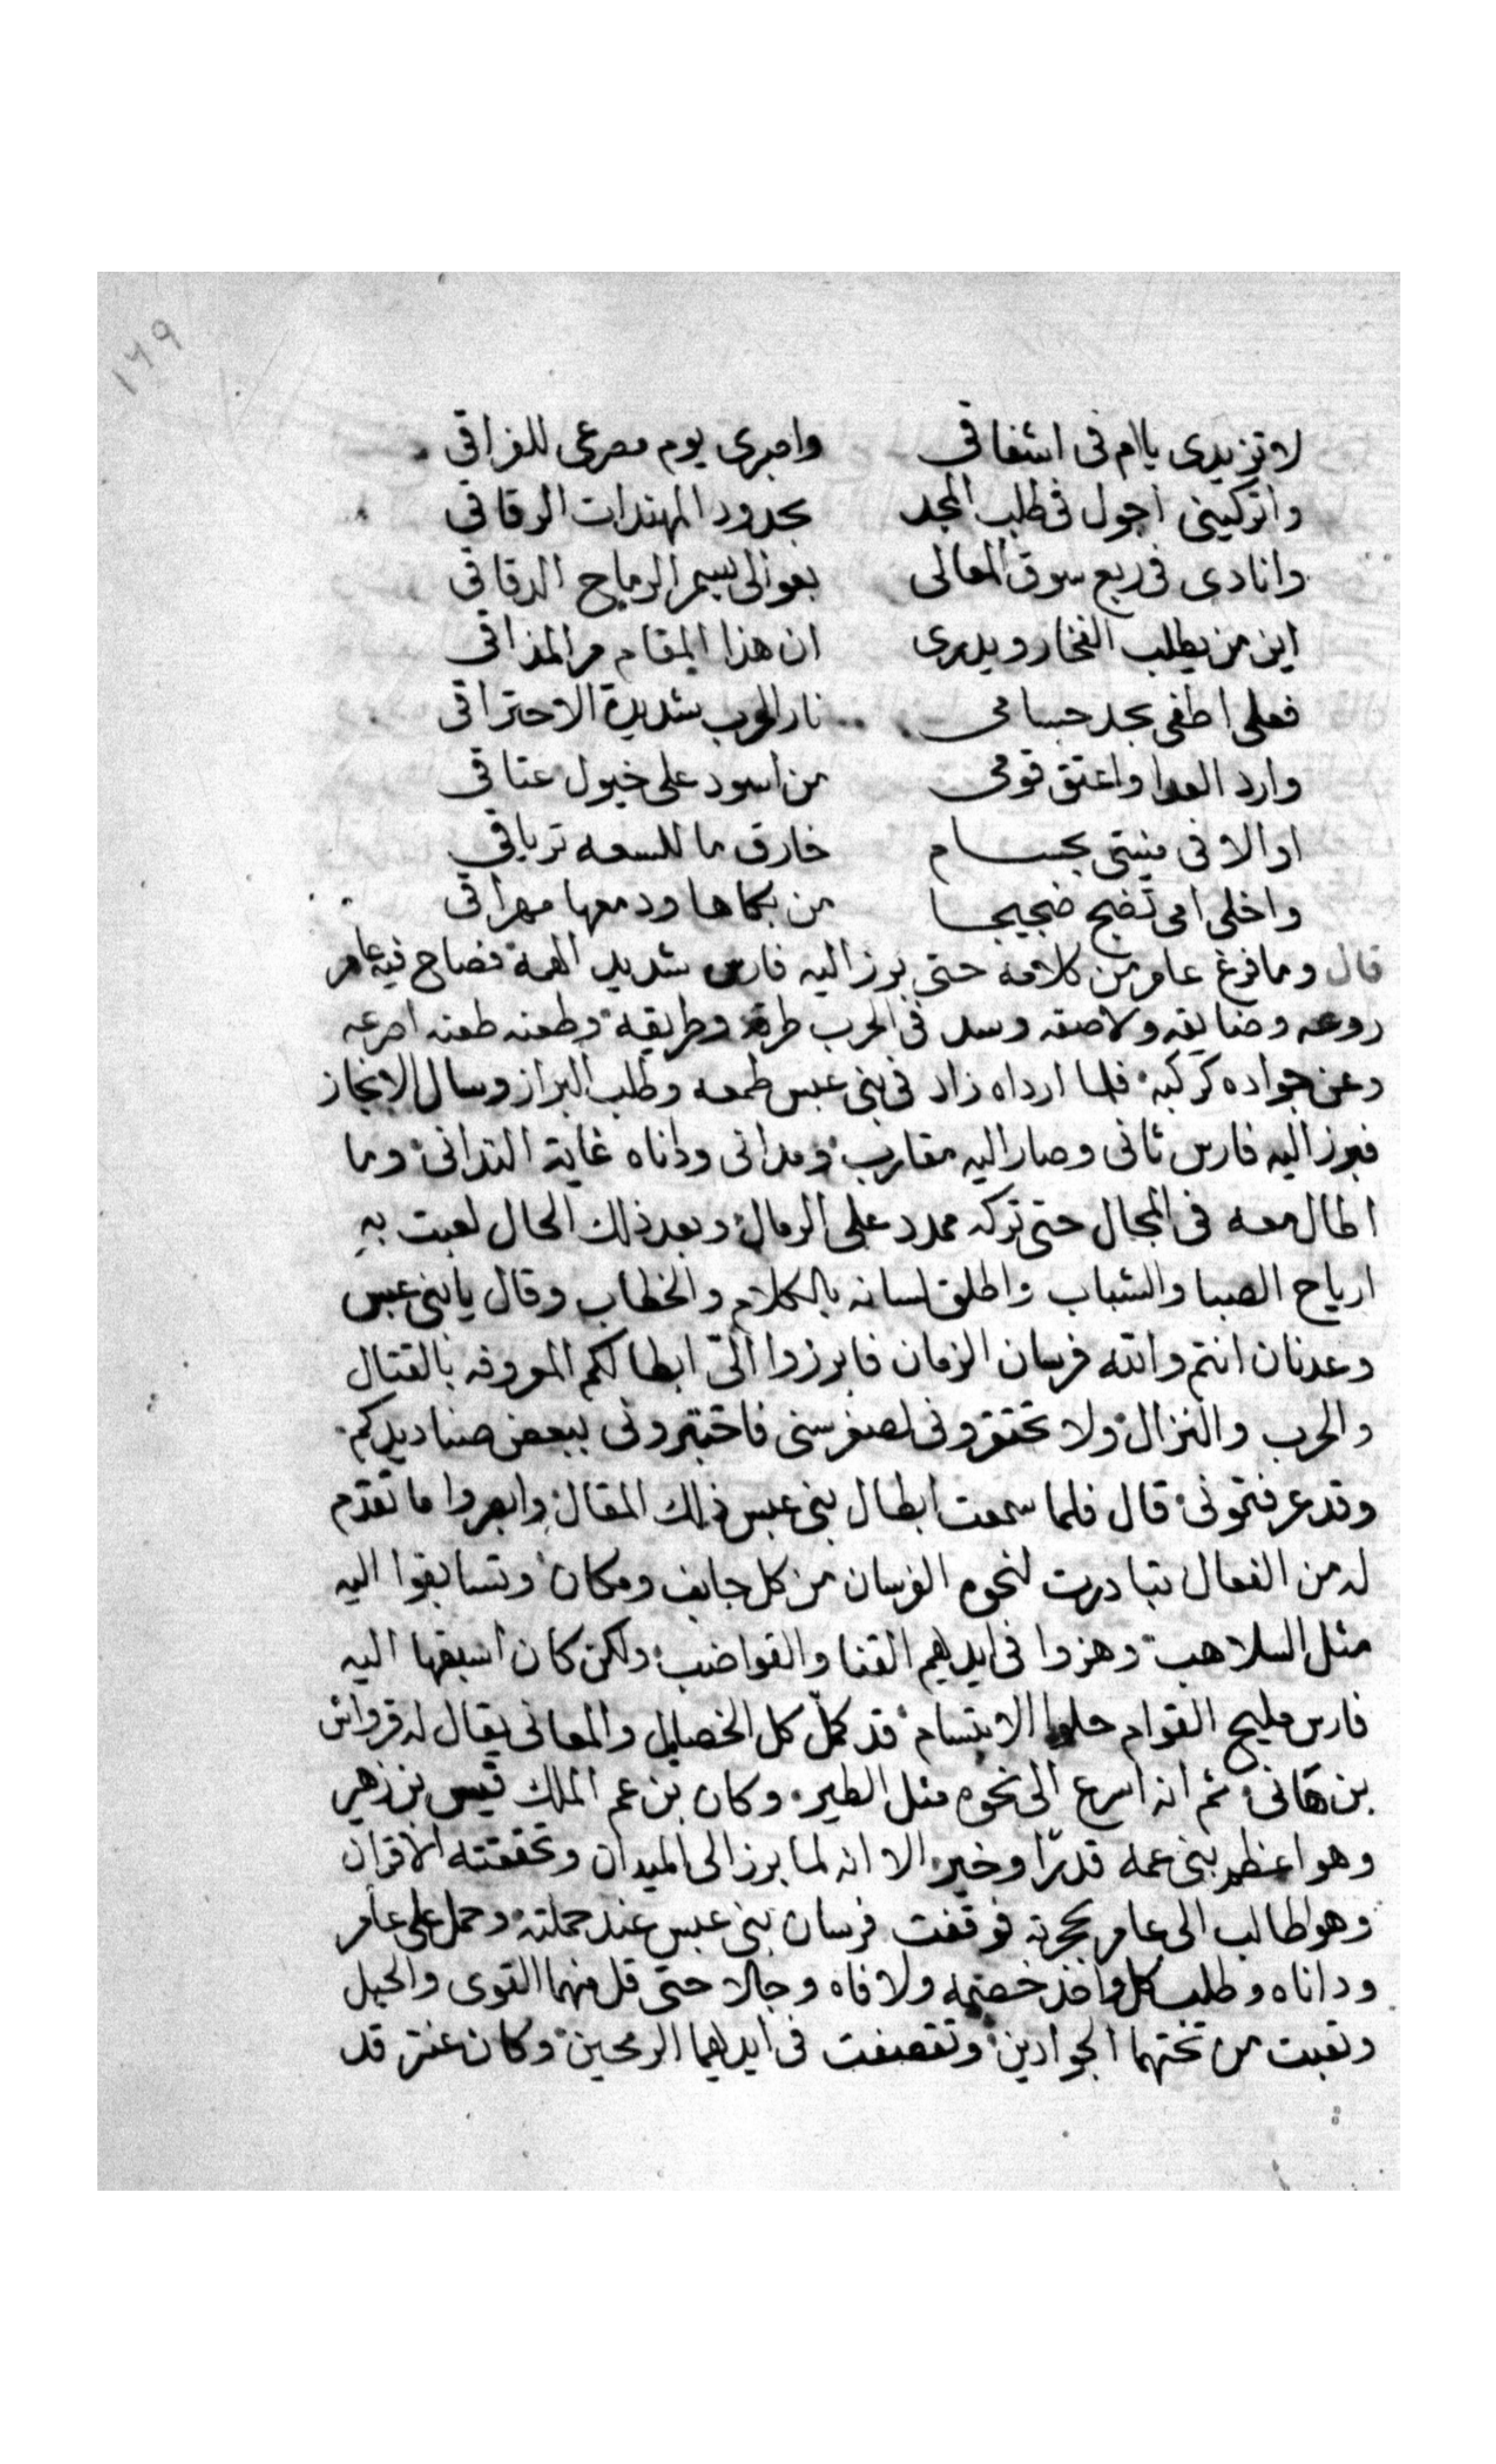 ١٦٩
لا تزيدى ياام فى اشفاقى واصبرى يوم مصرعى للفراقى
واتركينى اجول فى طلب المجد بحدود المهندات الرقاقى
وانادى فى ربع سوق المعالى بعوالى سمر الرماح الدقاقى
اين من يطلب الفخار ويدرى ان هذا المقام مر المذاقى
فعلى اطفى بحد حسامى نار الحرب شديدة الاحتراقى
وارد العدا واعتق قومى من اسود على خيول عتاقى
او الاقى منيتى بحسام خارق ما للسعه ترياقى
واخلى امى تضج ضجيجا من بكاها ودمعها مهراقى
قال وما فرغ عامر من كلامه حتى برز اليه فارس شديد الهمة فصاح فيه عامر
روعه وضايقه ولاصقه وسد فى الحرب طرقه وطريقه وطعنه طعنه اصرعه
وعن جواده كركبه فلما ارداه زاد فى بنى عبس طمعه وطلب البراز وسال الانجاز
فبرز اليه فارس ثانى وصار اليه مقارب ومدانى وداناه غاية التدانى وما
اطال معه فى المجال حتى تركه ممدد على الرمال وبعد ذلك الحال لعبت به
ارياح الصبا والشباب واطلق لسانه بالكلام والخطاب وقال يابنى عبس
وعدنان انتم والله فرسان الزمان فابرزوا الىّ ابطالكم المعروفه بالقتال
والحرب والنزال ولا تحتقرونى لصغر سنى فاختبرونى ببعض صناديدكم
وقد عرفتمونى قال فلما سمعت ابطال بنى عبس ذلك المقال وابصروا ما تقدم
له من الفعال تبادرت لنحوه الفرسان من كل جانب ومكان وتسابقوا اليه
مثل السلاهب وهزوا فى ايديهم القنا والقواضب ولكن كان اسبقها اليه
فارس مليح القوام حلوا الابتسام قد كمل كل الخصايل والمعانى يقال له قرواش
بن هانى ثم انه اسرع الى نحوه مثل الطير وكان بن عم الملك قيس بن زهير
وهو اعظم بنى عمه قدرا وخير الا انه لما برز الى الميدان وتحققته الاقران
وهو طالب الى عامر بحربه فوقفت فرسان بنى عبس عند حملته وحمل على عامر
وداناه وطلب كل واحد خصمه ولاقاه وجالا حتى قل منهما القوى والحيل
وتعبت من تحتهما الجوادين وتقصفت فى ايديهما الرمحين وكان عنتر قد